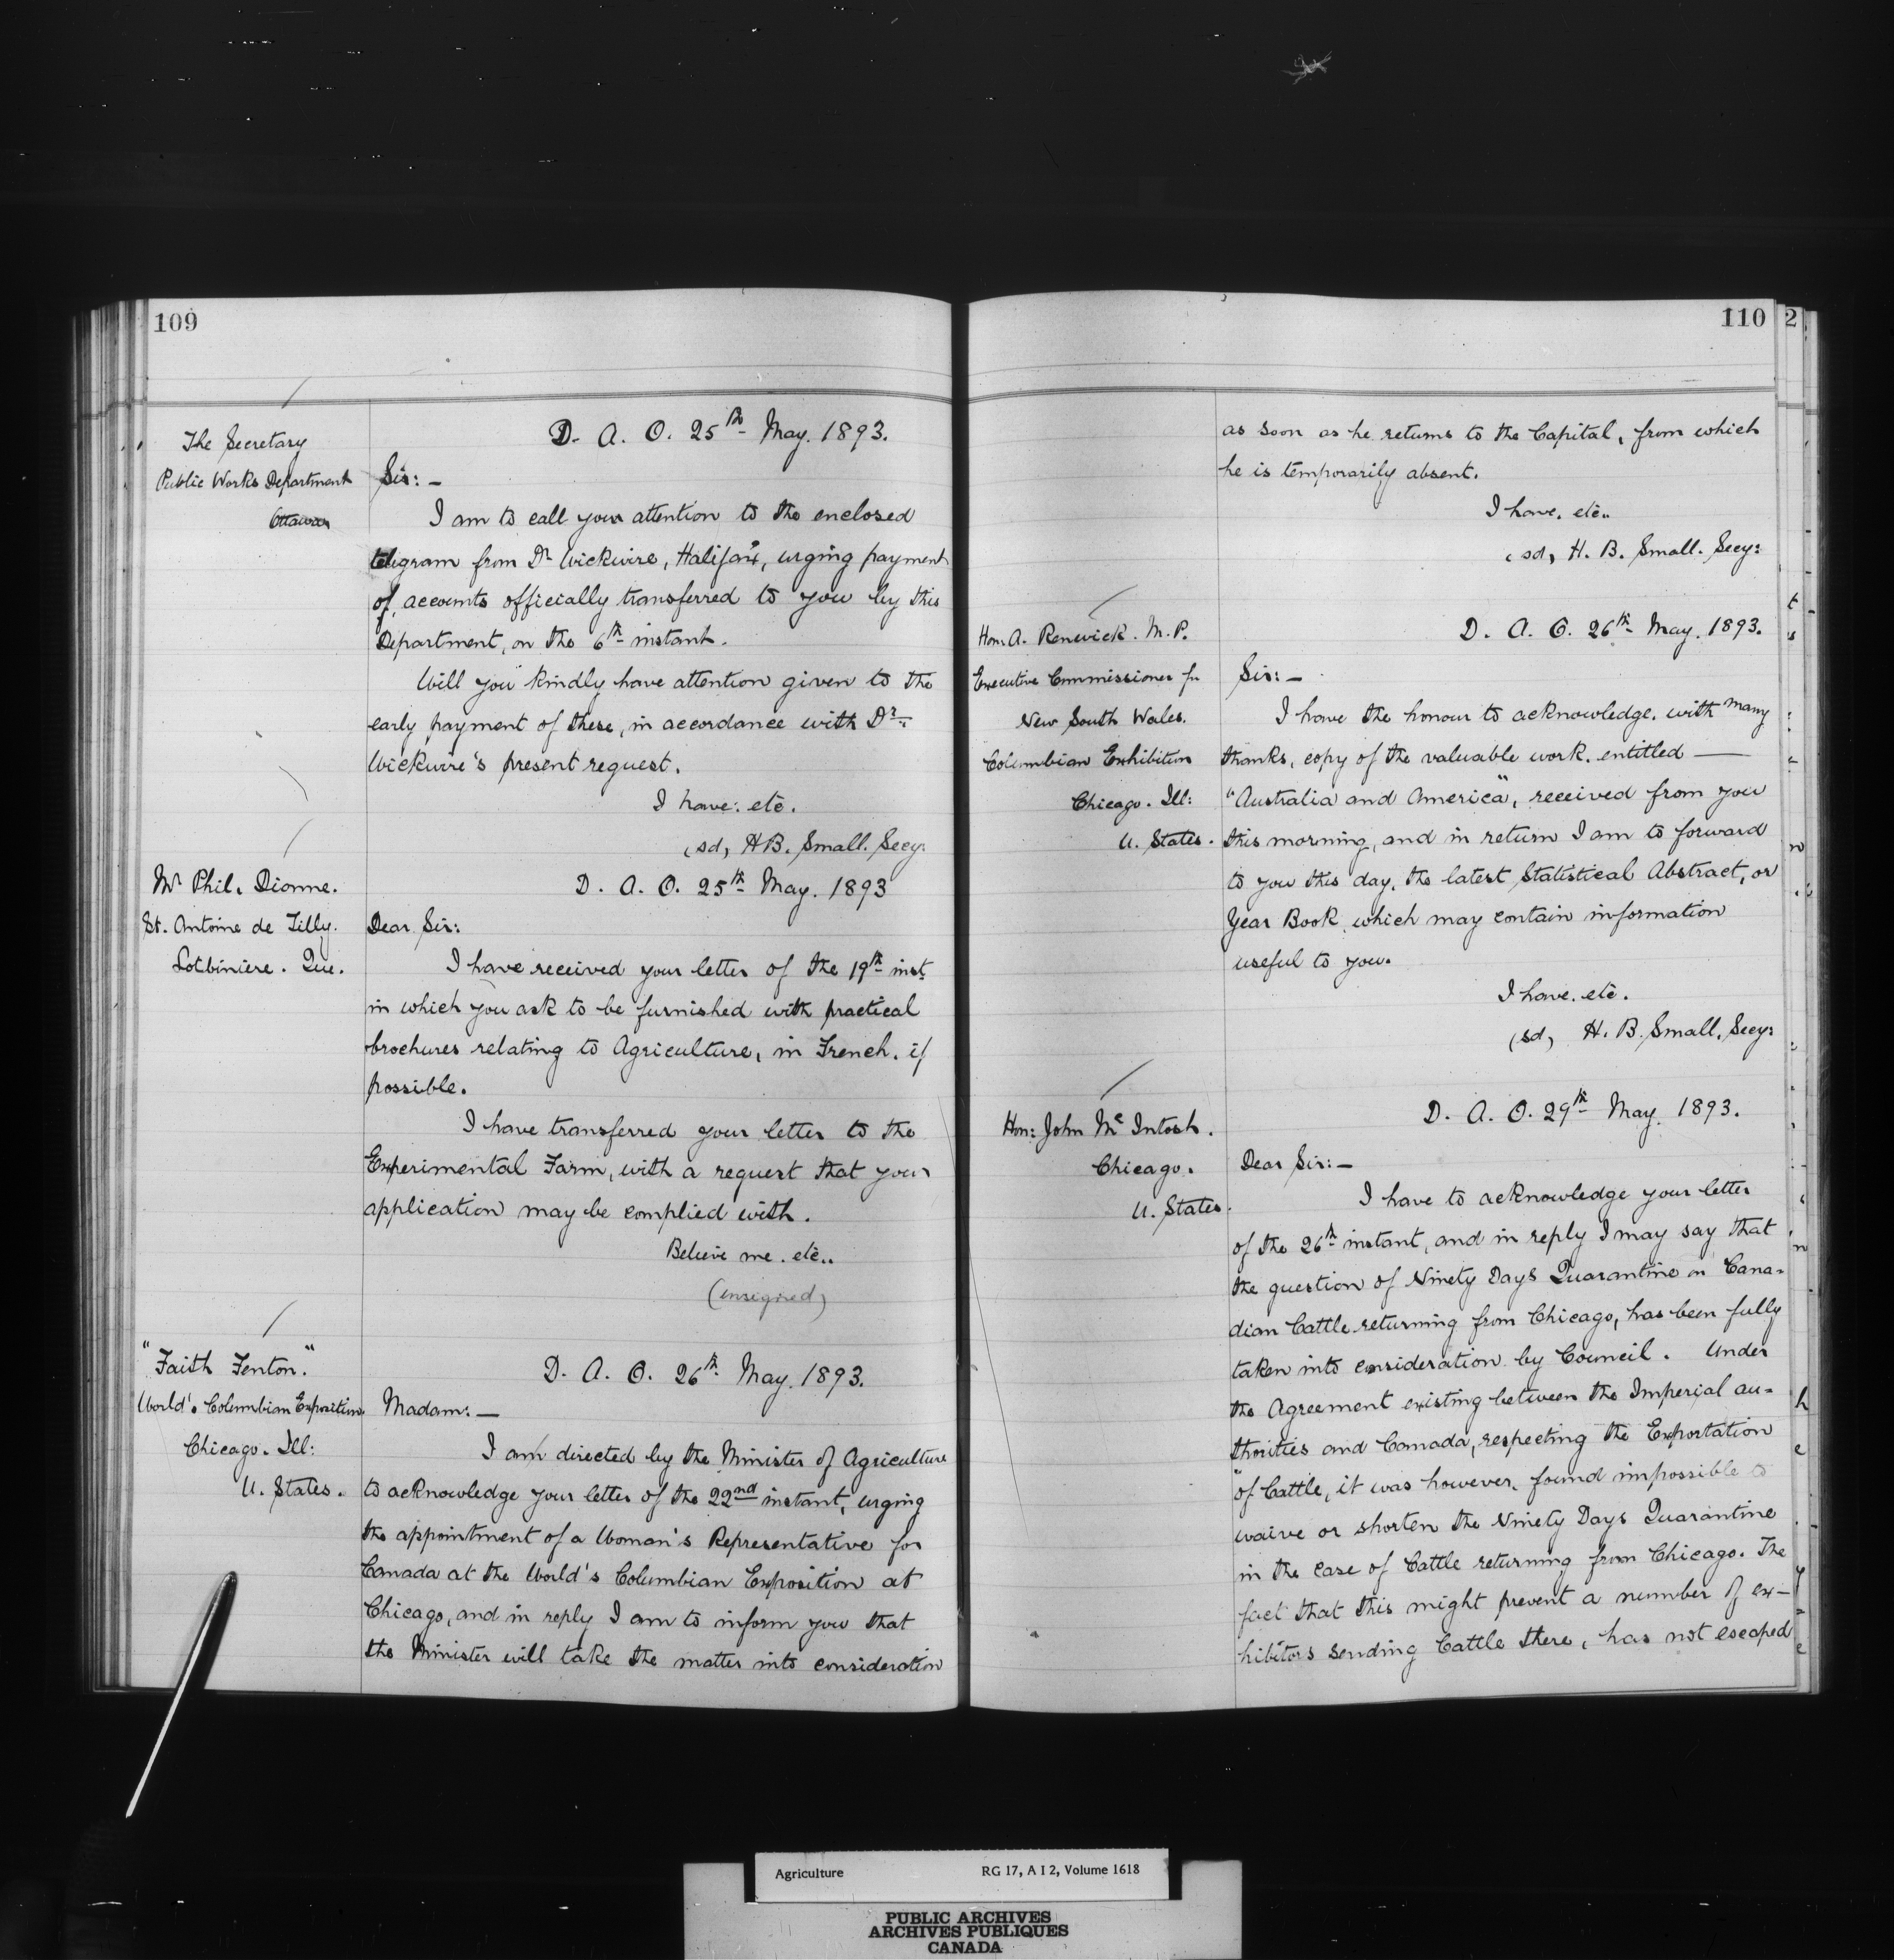 109
The Secretary
Public Works Department
Ottawa
D. A. O. 25th May. 1893.
Sir: –
I am to call your attention to the enclosed
telegram from Dr Wickwire, Halifax, urging payment
of accounts officially transferred to you by this
Department, on the 6th instant.
Will you kindly have attention given to the
early payment of these, in accordance with Dr
Wickwire's present request.
I have: etc.
(sd, H B. Small. Secy:
Mr Phil. Dionne.
St. Antoine de Tilly.
Lotbiniere. Que.
D. A. O. 25th May. 1893
Dear Sir:
I have received your letter of the 19th inst.
in which you ask to be furnished with practical
brochures relating to Agriculture, in French. if
possible.
I have transferred your letter to the
Experimental Farm, with a request that your
application may be complied with.
Believe me. etc..
(unsigned)
"Faith Fenton."
World's Columbian Exposition
Chicago. Ill:
U. States.
D. A. O. 26th May. 1893.
Madam: –
I am directed by the Minister of Agriculture
to acknowledge your letter of the 22nd instant, urging
the appointment of a Woman's Representative for
Canada at the World's Columbian Exposition at
Chicago, and in reply I am to inform you that
the Minister will take the matter into consideration
110
2
as soon as he returns to the Capital, from which
he is temporarily absent.
I have. etc..
(sd, H. B. Small. Secy:
Hon: A. Renwick. M. P.
Executive Commissioner for
New South Wales.
Columbian Exhibition
Chicago. Ill:
U. States.
D. A. O. 26th May. 1893.
Sir: –
I have the honour to acknowledge. with many
thanks, copy of the valuable work. entitled —
"Australia and America", received from you
this morning, and in return I am to forward
to you this day, the latest Statistical Abstract, or
Year Book, which may contain information
useful to you.
I have. etc.
(sd, H. B. Small. Secy:
Hon: John Mc Intosh.
Chicago.
U. States.
D. A. O. 29th May. 1893.
Dear Sir: –
I have to acknowledge your letter
of the 26th instant, and in reply I may say that
the question of Ninety Days Quarantine on Cana-
dian Cattle returning from Chicago, has been fully
taken into consideration by Council. Under
the Agreement existing between the Imperial au-
thorities and Canada, respecting the Exportation
of Cattle, it was however, found impossible to
waive or shorten the Ninety Days Quarantine
in the case of Cattle returning from Chicago. The
fact that this might prevent a number of ex-
hibitors sending Cattle there, has not escaped
Agriculture RG 17, A I 2, Volume 1618
PUBLIC ARCHIVES
ARCHIVES PUBLIQUES
CANADA